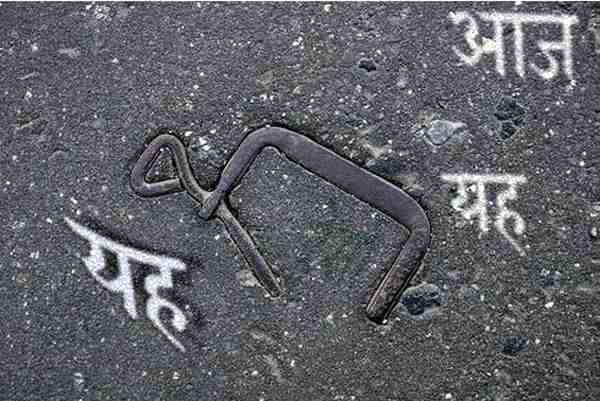 आज
यह
यह